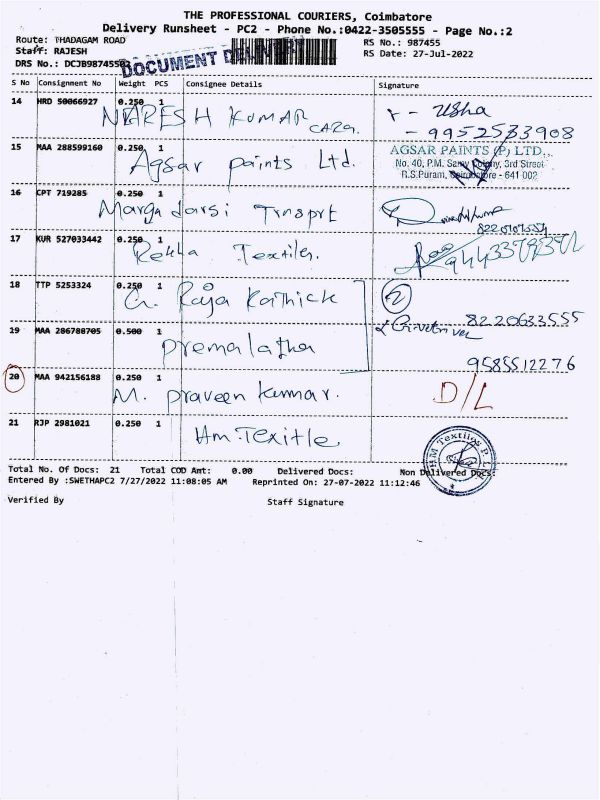 THE PROFESSIONAL COURIERS, Coimbatore
Delivery Runsheet - PC2 - Phone No.:0422-3505555 - Page No.:2
Route: THADAGAM ROAD RS No.: 987455
Staff: RAJESH RS Date: 27-Jul-2022
DRS No.: DCJB987455
DOCUMENT
S No Consignment No Weight PCS Consignee Details Signature
14 HRD 50066927 0.250 1 NARESH KUMAR r - Usha
- 9952533908
15 MAA 288599160 0.250 1 Agsar paints Ltd. AGSAR PAINTS (P) LTD.,
No. 40, P.M. Samy Colony, 3rd Street
R.S.Puram, Coimbatore - 641 002
16 CPT 719285 0.250 1 Marga darsi Trnsprt
17 KUR 527033442 0.250 1 Rekha Textiles.
18 TTP 5253324 0.250 1 G. Raja Kathick 2
8220633555
19 MAA 286788705 0.500 1 premalatha
9585512276
20 MAA 942156188 0.250 1 M. praveen kumar. D/L
21 RJP 2981021 0.250 1 Hm Texitle HM Textiles P. L
Total No. Of Docs: 21 Total COD Amt: 0.00 Delivered Docs: Non Delivered Docs:
Entered By :SWETHAPC2 7/27/2022 11:08:05 AM Reprinted On: 27-07-2022 11:12:46
Verified By Staff Signature